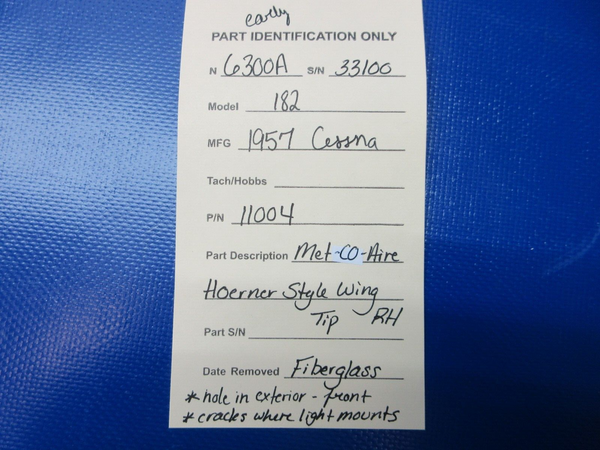 early
PART IDENTIFICATION ONLY
N 6300A S/N 33100
Model 182
MFG 1957 Cessna
Tach/Hobbs
P/N 11004
Part Description Met-CO-Aire
Hoerner Style Wing
Tip RH
Part S/N
Date Removed Fiberglass
* hole in exterior - front
* cracks where light mounts